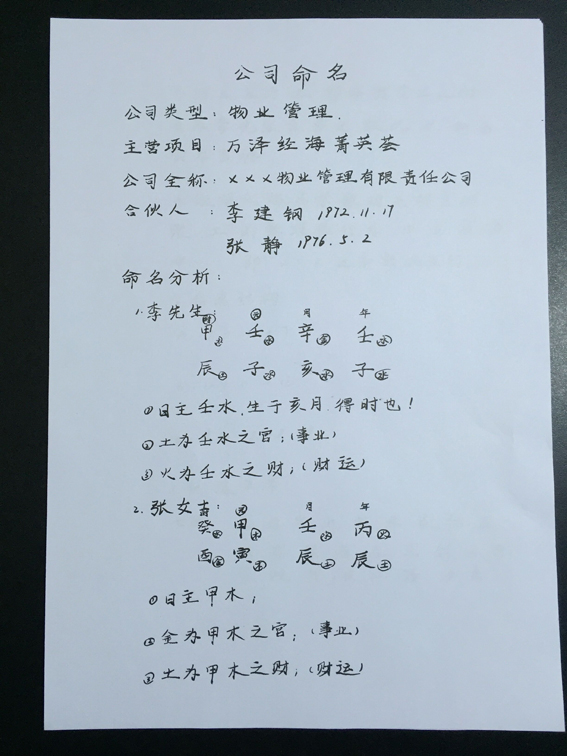 公司命名
公司类型：物业管理.
主营项目：万泽经海菁英荟
公司全称：×××物业管理有限责任公司
合伙人：李建钢 1972.11.17
张静 1976.5.2
命名分析：
1.李先生： 时 日 月 年
甲木 壬水 辛金 壬水
辰土 子水 亥水 子水
①日主壬水，生于亥月，得时也！
②土为壬水之官；（事业）
③火为壬水之财；（财运）
2.张女士： 日 月 年
癸水 甲木 壬水 丙火
酉金 寅木 辰土 辰土
①日主甲木；
②金为甲木之官；（事业）
③土为甲木之财；（财运）